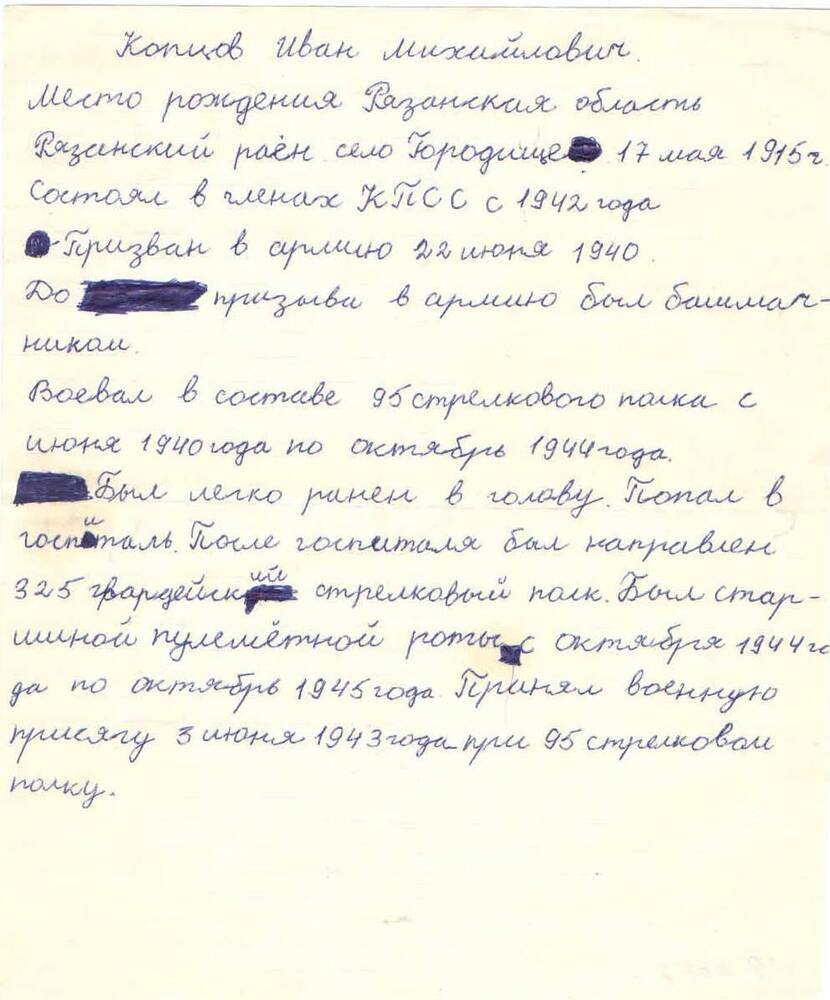 Копцов Иван Михайлович.
Место рождения Рязанская область
Рязанский раён село Городище 17 мая 1915 г.
Состоял в членах КПСС с 1942 года
Призван в армию 22 июня 1940.
До призыва в армию был башмач-
ником.
Воевал в составе 95 стрелкового полка с
июня 1940 года по октябрь 1944 года.
Был легко ранен в голову. Попал в
госпиталь. После госпиталя был направлен
325 гвардейский стрелковый полк. Был стар-
шиной пулемётной роты с октября 1944 го
да по октябрь 1945 года. Принял военную
присягу 3 июня 1943 года при 95 стрелковом
полку.